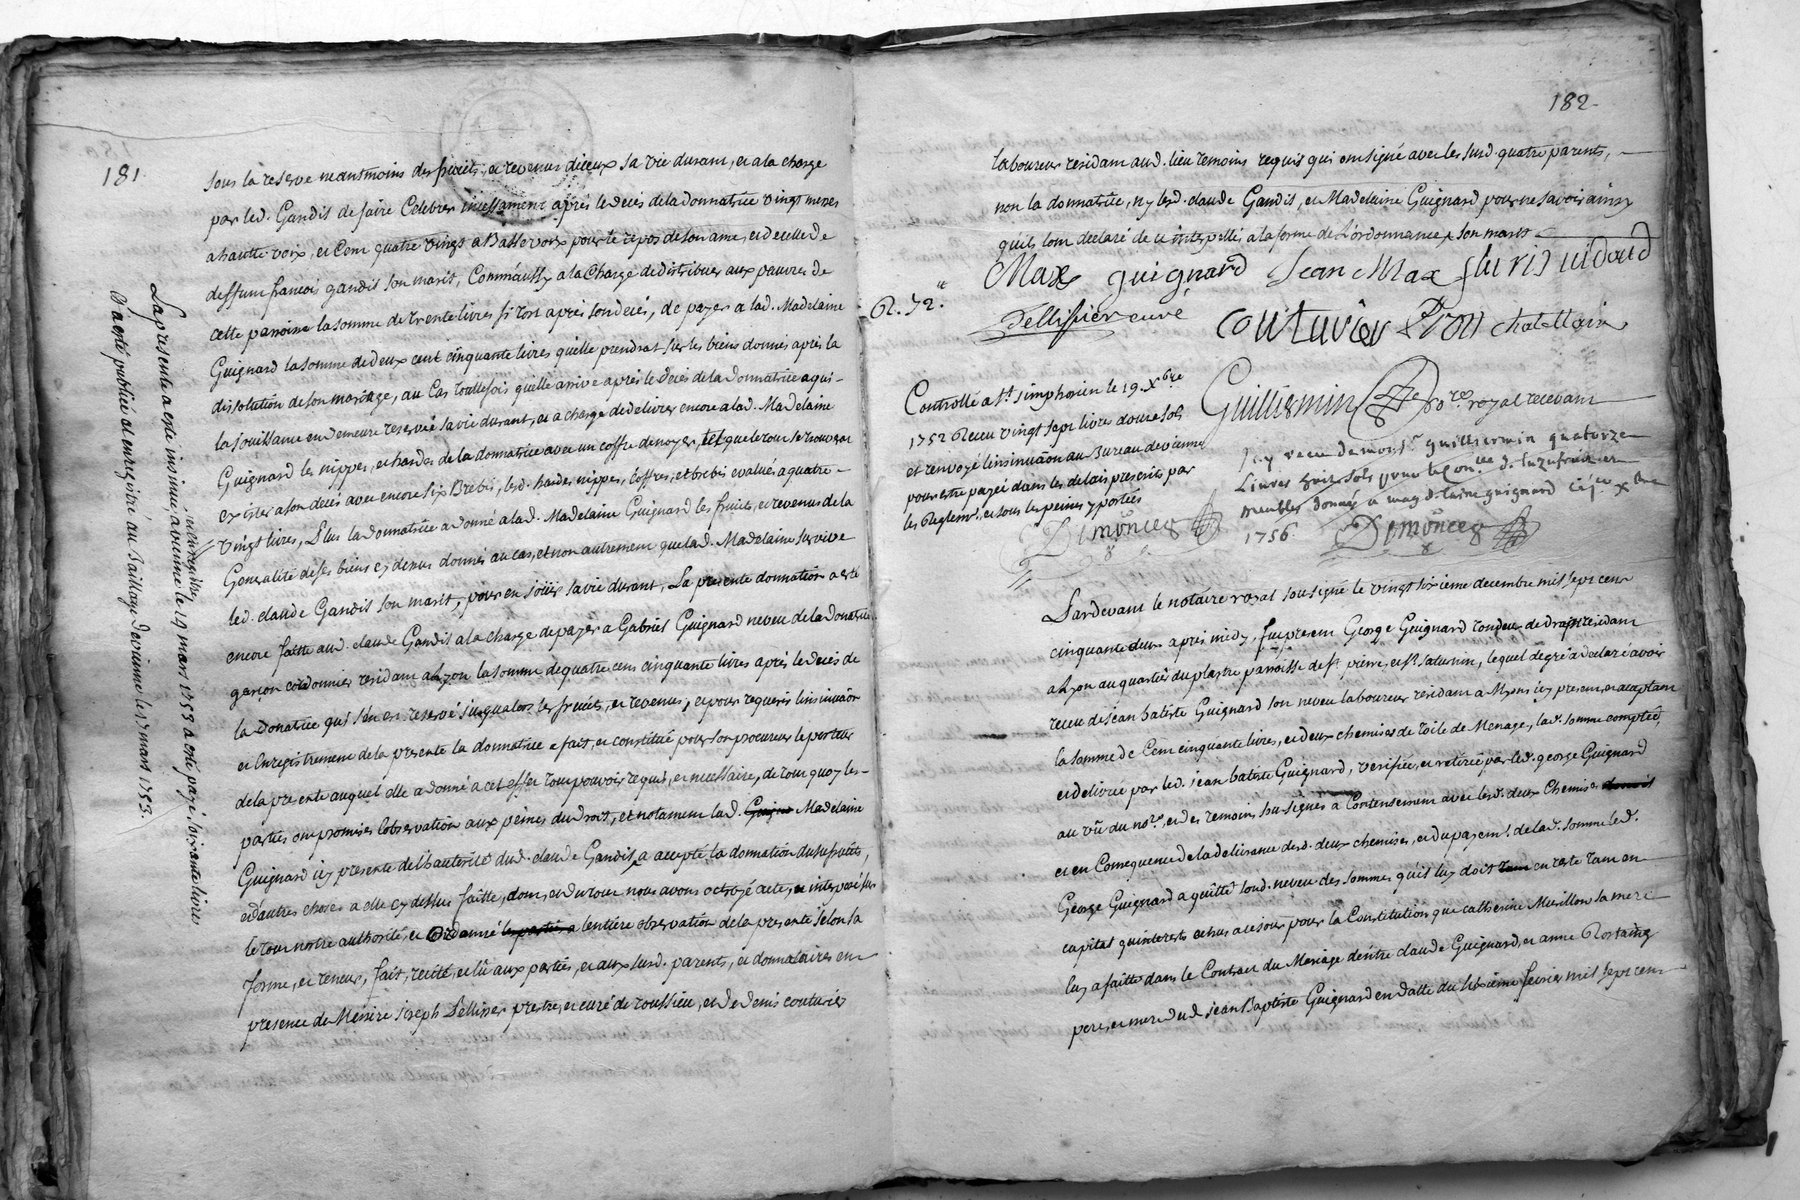 181.
sous la reserve neantmoins des fruits, et revenus diceux sa vie durant, et a la charge
par led. Gandit de faire Celebrer incessament après le decès de la donnatrice vingt messes
a hautte voix, et Cent quatre vingts a Basse voix pour le repos de son ame, et de celle de
deffunt francois gandit son marit, Comm'aussy a la Charge de distribuer aux pauvres de
cette parroisse la somme de trente livres si tost après son decés, de payer a lad. Madelaine
Guignard la somme de deux cent cinquante livres quelle prendrat sur les biens donnés après la
dissolution de son mariage, au Cas touttefois quelle arrive après le decès de la donnatrice a qui-
la jouissance en demeure reservée sa vie durant, et a charge de delivrer encore a lad. Madelaine
Guignard les nippes, et hardes de la donnatrice avec un coffre de noyer, tel que le tout se trouverat
exister a son decés avec encore six Brebis, lesd. hardes nippes, Coffres, et brebis evalués a quatre-
vingt livres, Plus la donnatrice a donné a lad. Madelaine Guignard les fruits, et revenus de la
Generalité de ses biens cy dessus donnés au cas, et non autrement que lad. Madelaine survive
led. claude Gandit son marit, pour en jouir sa vie durant, La presente donnation a esté
encore faitte aud. claude Gandit a la charge de payer a Gabriel Guignard neveu de la donatrice
garçon cordonnier residant a Lyon la somme de quatre cens cinquante livres après le decés de
la donatrice qui s'en est reservé jusqu'alors les fruits, et revenus, et pour requerir l'insinuaôn
et Enregistrement de la presente la donnatrice a fait, et constitué pour son procureur le porteur
de la presente auquel elle a donné a cet effet tout pouvoir requis, et necessaire, de tout quoy les-
parties ont promises l'observation aux peines du droit, et notament lad. Madelaine
Guignard icy presente de l'hautorité dud. claude Gandit a accepté la donnation du susfruits,
et d'autres choses a elle cy dessus faitte, dont, et du tout nous avons octroyé acte, et interposé sur
le tout nostre authorité, et ordonné l'entière observation de la presente selon sa
forme, et teneur, fait, recité, et lû aux parties, et aux susd. parents, et donnataires en
presence de Messire Joseph Pellissier prestre, et curé de roussieu, et de denis couturier
La presente a esté insinuée, et enregistrée a vienne le 9 mars 1753 a esté payé soixante livres
D'a esté publiée et enregistré au Baillage de vienne le 17 mars 1753.
182.
laboureur residant aud. lieu temoins requis qui ont signé avec les susd. quatre parents,
non la donnatrice, ny lesd. claude Gandit, et Madelaine Guignard pour ne savoir ainsy
qu'ils l'ont declaré de ce interpellés a la forme de l'ordonnance, son marit
Max guignard Jean Max
Pellissier curé couturier chatellain
Controllé a St. simphorien le 19. Xbre
1752 Receu vingt sept livres douze sols
et renvoyé l'insinuaôn au Bureau de vienne
pour estre payée dans les delais prescrits par
les Reglemt. et sous les peines y portées
Demonces
Guilliermin No.re royal recevant
J'ay receu de mons.r guilliermin quatorze
Livres huit sols pour le
meubles donnés a magdelaine guignard
1756. Demonces
Pardevant le notaire royal sousigné le vingt sixieme decembre mil sept cent
cinquante deux après midy, fut present George Guignard tondeur de drap residant
a Lyon au quartier du plastre paroisse de st. pierre, et st. saturnin, lequel de gré a declaré avoir
receu de jean batiste Guignard son neveu laboureur residant a icy present, et acceptant
la somme de Cent cinquante livres, et deux chemises de toile de Menage, lad. somme comptée,
et delivrée par led. jean batiste Guignard, verifiée, et retirée par led. george Guignard
au vû du no.re, et des temoins sus signés a Contentement avec lesd. deux Chemises
et en Consequence de la delivrance desd. deux chemises, et du payem.t de lad. somme led.
George Guignard a quitté sond. neveu des sommes qu'il luy doit en reste tant en
capital qu'interests echus a ce jour pour la Constitution que catherine Murillon sa mere
luy a faitte dans le Contract du Mariage d'entre claude Guignard, et anne Rostaing
pere, et mere dud. jean Baptiste Guignard en datte du fevrier mil sept cent